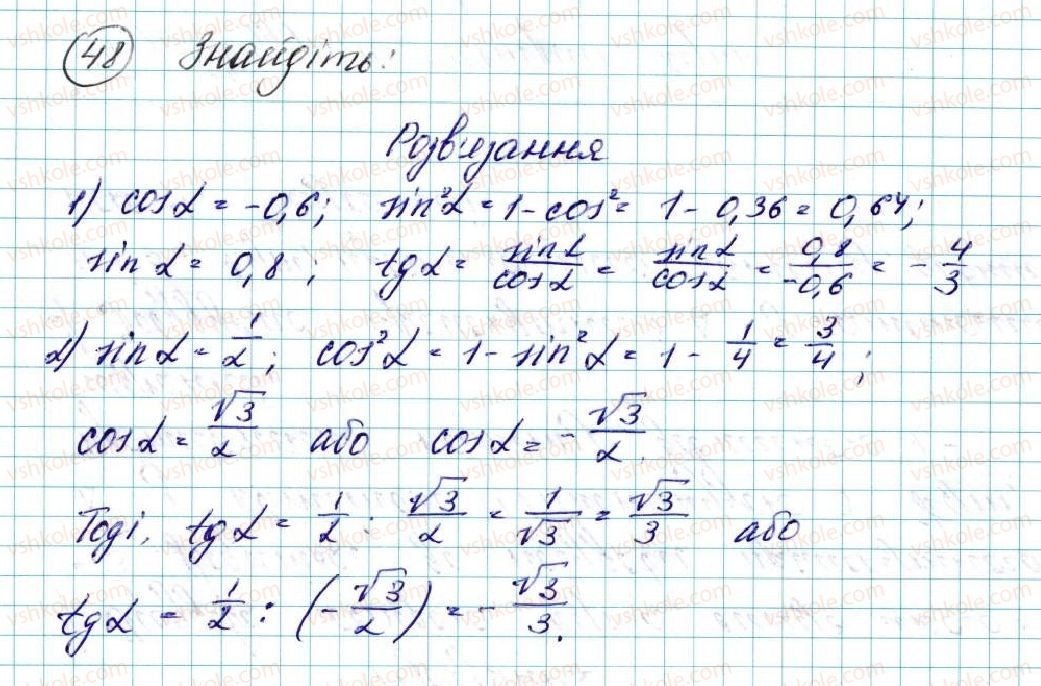 48 Знайдіть:
Розв'язання
1) cosα = -0,6; sin²α = 1 - cos² = 1 - 0,36 = 0,64;
sin α = 0,8; tgα = sinα/cosα = sinα/cosα = 0,8/-0,6 = -4/3
2) sin α = 1/2; cos²α = 1 - sin²α = 1 - 1/4 = 3/4;
cosα = √3/2 або cosα = -√3/2.
Тоді, tgα = 1/2 : √3/2 = 1/√3 = √3/3 або
tgα = 1/2 : (-√3/2) = -√3/3.